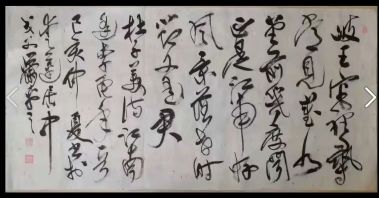 岐王宅裡尋
常見崔九
堂前幾度聞
正是江南好
風景落花時
節又逢君
杜子美詩江南
逢李龜年
己亥仲夏書於
居中